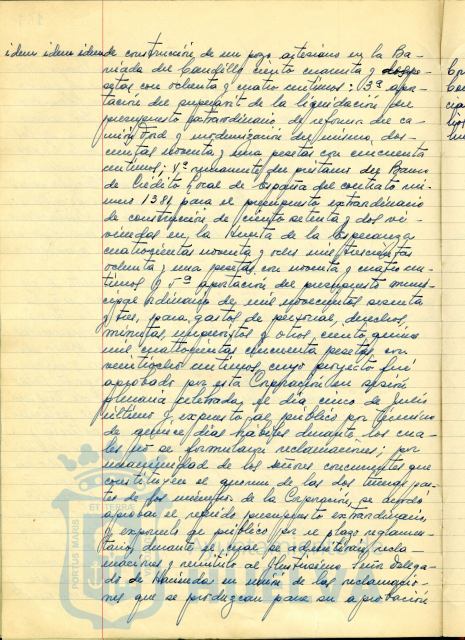 idem idem idem de construcción de un pozo artesiano en la Ba-
rriada del Caudillo, ciento cuarenta y dos pe-
setas con ochenta y cuatro céntimos; 3ª apor-
tación del superavit de la liquidación del
presupuesto extraordinario de reforma del ca-
mión Ford y modernización del mismo, dos-
cientas noventa y una pesetas con cincuenta
céntimos; 4º remanente del préstamo del Banco
de Crédito Local de España del contrato nú-
mero 1381 para el presupuesto extraordinario
de construcción de ciento setenta y dos vi-
viendas en la Huerta de la Esperanza
cuatrocientas noventa y ocho mil trescientas
ochenta y una pesetas con noventa y cuatro cén-
timos y 5ª aportación del presupuesto muni-
cipal ordinario de mil novecientos sesenta
y tres, para gastos de personal, derechos,
minutas, imprevistos y otros, ciento quince
mil cuatrocientas cincuenta pesetas con
veintiocho céntimos, cuyo proyecto fué
aprobado por esta Corporación en sesión
plenaria celebrada el día cinco de Julio
último y expuesto al público por término
de quince días hábiles durante los cua-
les no se formularon reclamaciones; por
unanimidad de los señores concurrentes que
constituyen el quorum de las dos terceras par-
tes de los miembros de la Corporación, se acordó
aprobar el referido presupuesto extraordinario,
y exponerlo al público por el plazo reglamen-
tario, durante el cual se admitirán recla-
maciones y remitirlo al Ilustrísimo Señor Delega-
do de Hacienda en unión de las reclamacio-
nes que se produzcan para su aprobación
PORTUS MARIS
ET TERRA